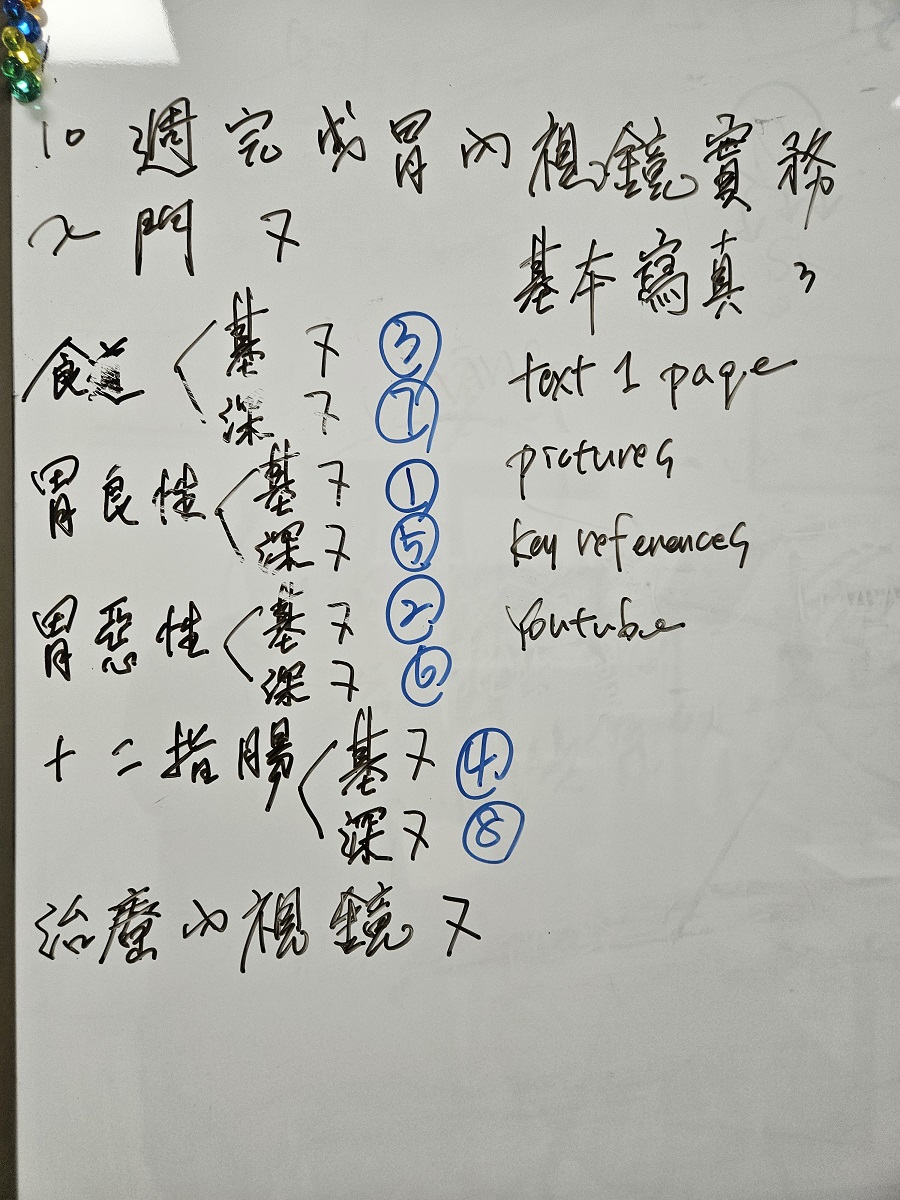 10 週完成胃內視鏡實務
入門 7
基本寫真 3
text 1 page
pictures
key references
Youtube
食道 基 7 ③
深 7 ⑦
胃良性 基 7 ①
深 7 ⑤
胃惡性 基 7 ②
深 7 ⑥
十二指腸 基 7 ④
深 7 ⑧
治療內視鏡 7